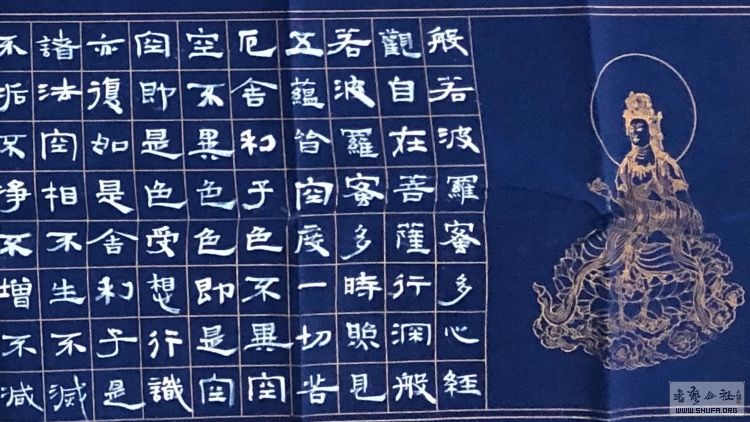 般若波羅蜜多心經
觀自在菩薩行深般
若波羅蜜多時照見
五蘊皆空度一切苦
厄舍利子色不異空
空不異色色即是空
空即是色受想行識
亦復如是舍利子是
諸法空相不生不滅
不垢不淨不增不減
書藝公社
WWW.SHUFA.ORG